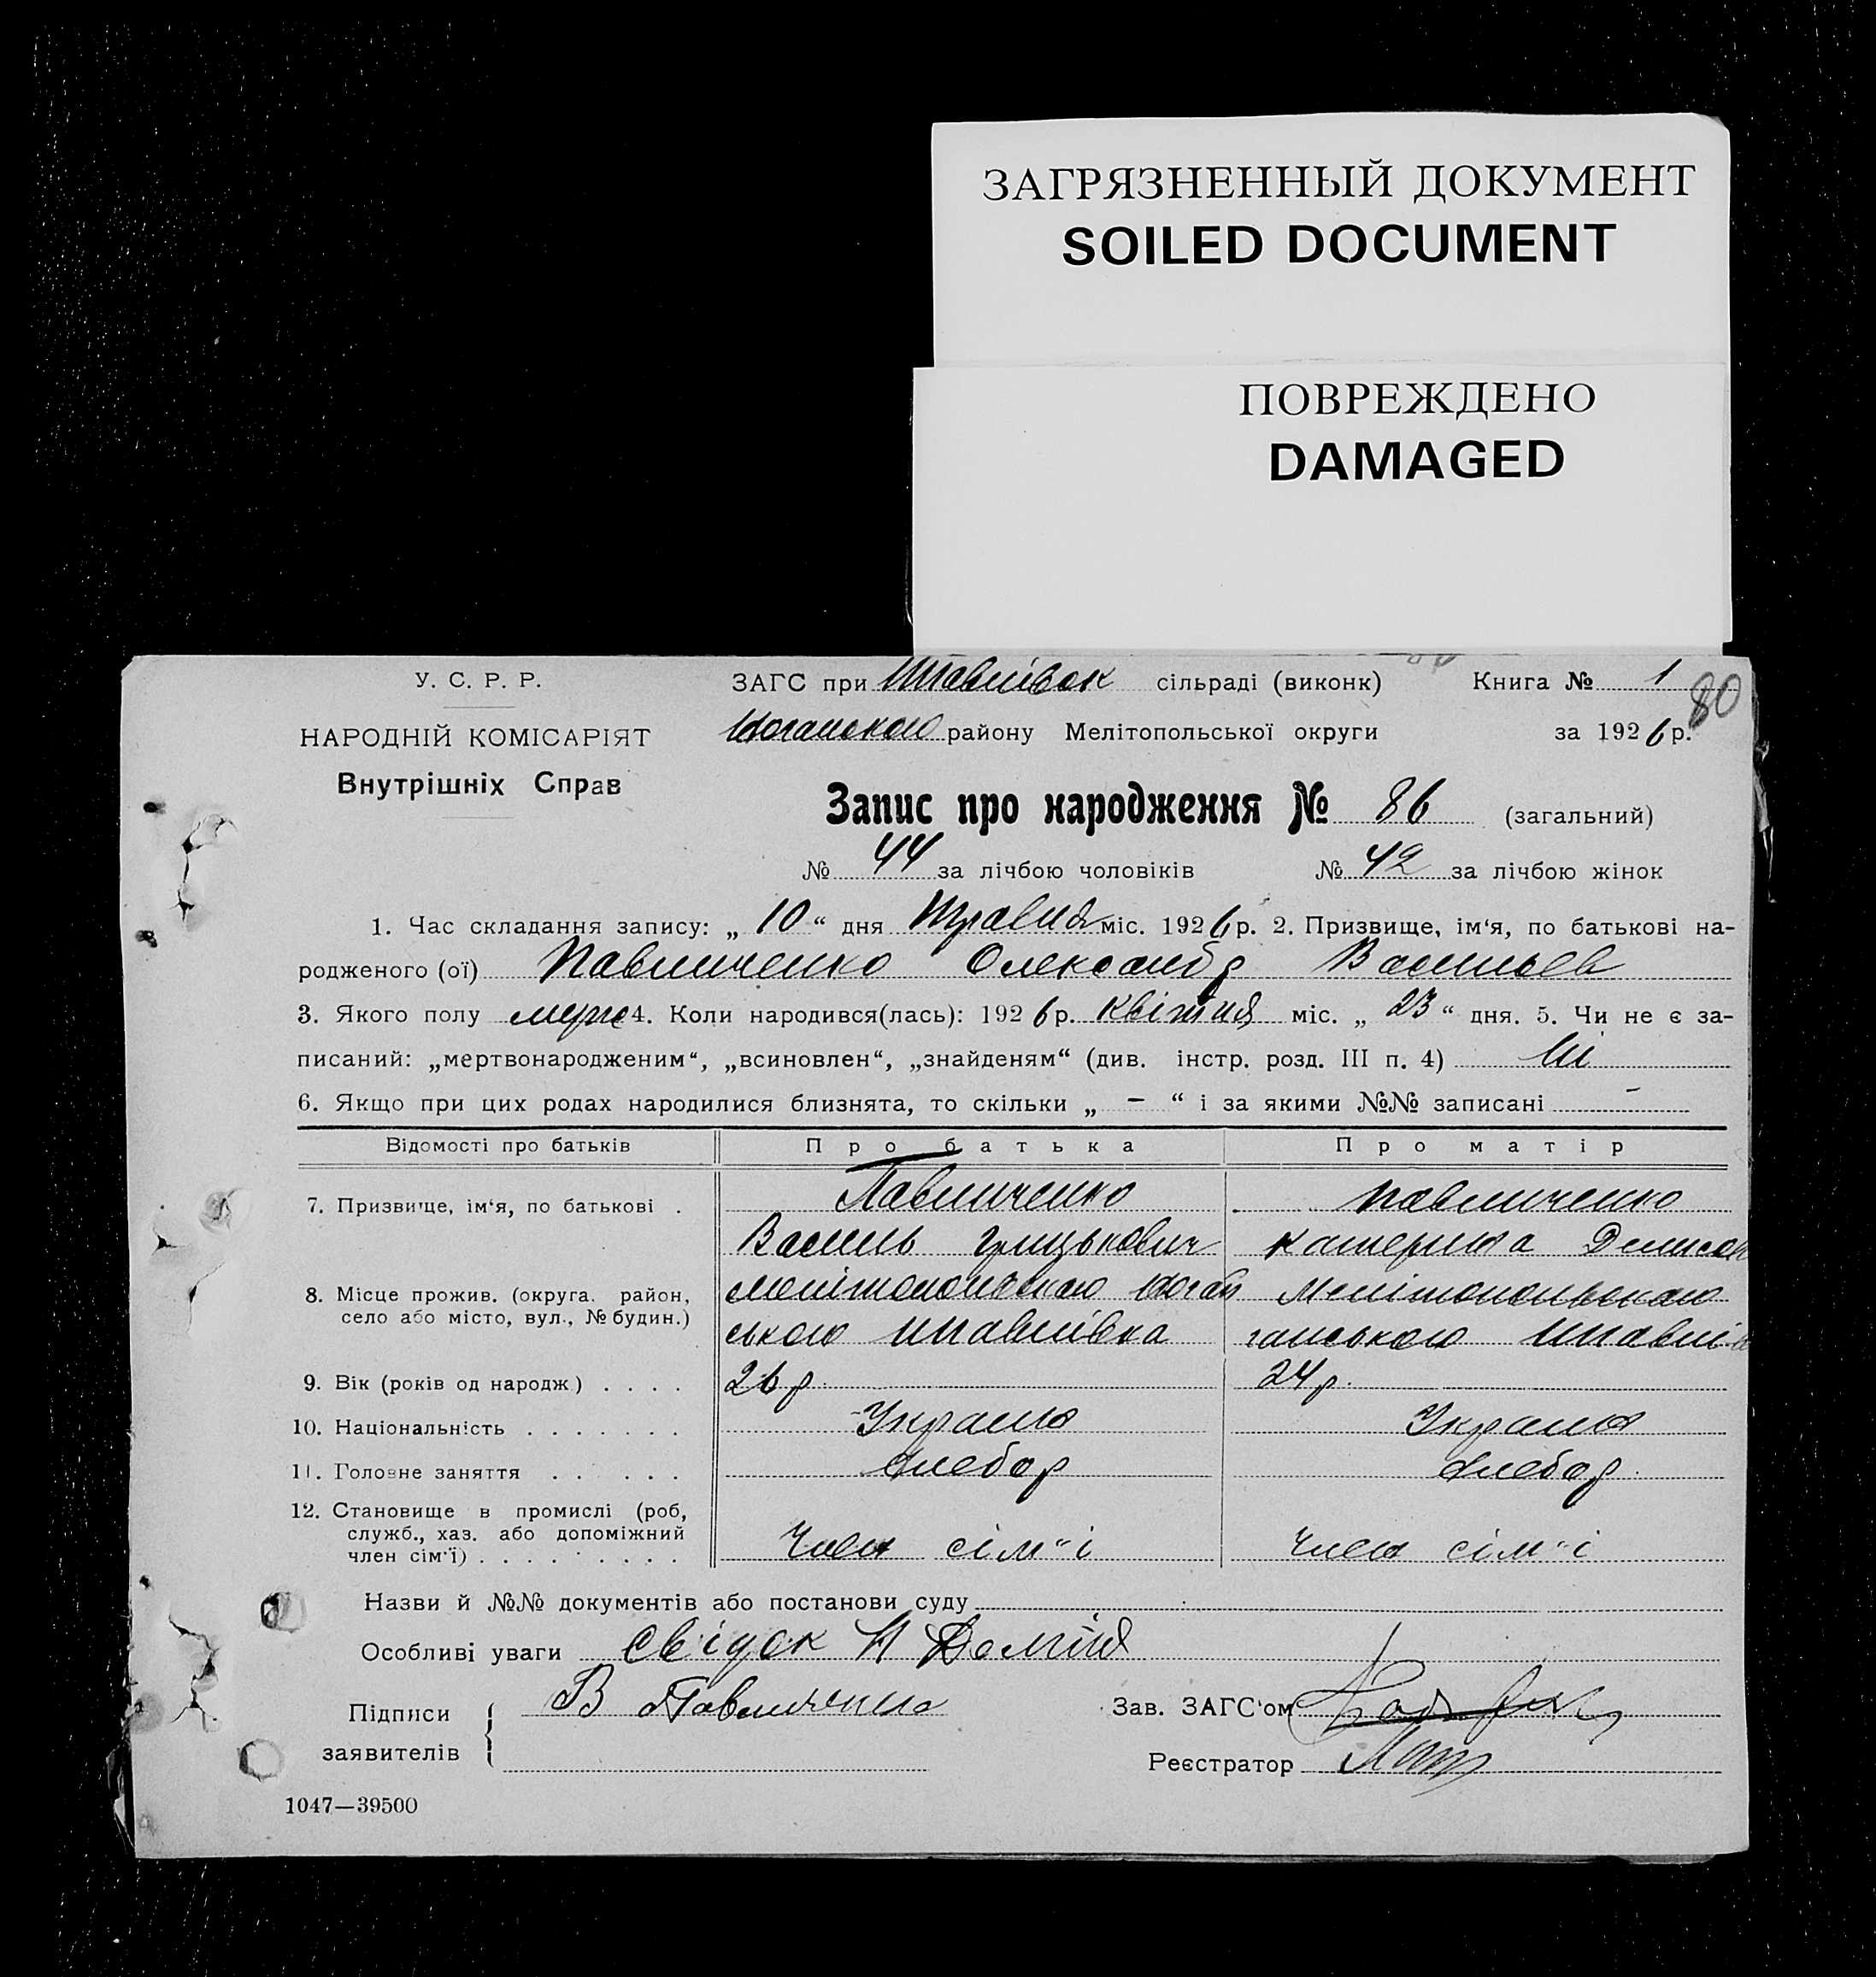 ЗАГРЯЗНЕННЫЙ ДОКУМЕНТ
SOILED DOCUMENT
ПОВРЕЖДЕНО
DAMAGED
У. С. Р. Р.
НАРОДНІЙ КОМІСАРІЯТ
Внутрішніх Справ
ЗАГС при Шпавлівск сільраді (виконк) Книга № 1
80
Ноганського району Мелітопольської округи за 1926 р.
Запис про народження № 86 (загальний)
№ 44 за лічбою чоловіків № 42 за лічбою жінок
1. Час складання запису: „ 10 “ дня Травня міс. 1926 р. 2. Призвище, ім‘я, по батькові на-
родженого (ої) Павличенко Олександр Васильев
3. Якого полу муже 4. Коли народився(лась): 1926 р. Квітня міс. „ 23 “ дня. 5. Чи не є за-
писаний: „мертвонародженим“, „всиновлен“, „знайденям“ (див. інстр. розд. III п. 4) Ні
6. Якщо при цих родах народилися близнята, то скільки „ – “ і за якими №№ записані –
Відомості про батьків Про батька Про матір
7. Призвище, ім‘я, по батькові . Павличенко Павличенко
Василь Грицькович Катерина Денисов
8. Місце прожив. (округа, район, село або місто, вул., № будин.) Мелітопольського Ногай Мелітопольського
ського Шпавлівка ганського Шпавлів
9. Вік (років од народж) . . . . 26 р. 24 р.
10. Національність . . . . . . . Украин Украин
11. Головне заняття . . . . . Хлебор Хлебор
12. Становище в промислі (роб,
служб., хаз. або допоміжний
член сім‘ї) . . . . . . . . . Член сім"і Член сім"і
Назви й №№ документів або постанови суду
Особливі уваги Свідок Н
Підписи заявителів В Павличенко
Зав. ЗАГС‘ом
Реєстратор
1047—39500